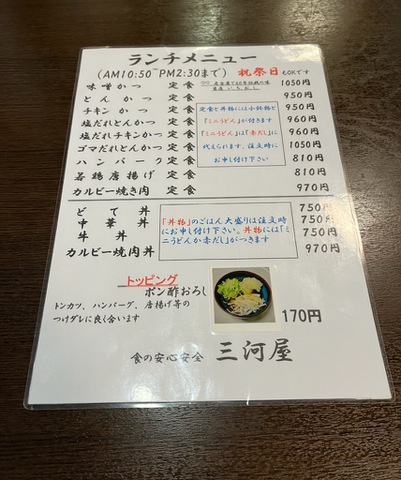 ランチメニュー
(AM10:50~PM2:30まで) 祝祭日もOKです
味噌かつ 定食 1050円
とんかつ 定食 950円
チキンかつ 定食 950円
塩だれとんかつ 定食 960円
塩だれチキンかつ 定食 960円
ゴマだれとんかつ 定食 1050円
ハンバーグ 定食 810円
若鶏唐揚げ 定食 810円
カルビー焼き肉 定食 970円
定食と丼物には小鉢物と
「ミニうどん」が付きます
「ミニうどん」は「赤だし」に
代えられます、注文時に
お申し付け下さい
どて丼 750円
中華丼 750円
牛丼 750円
カルビー焼肉丼 970円
「丼物」のごはん大盛りは注文時
にお申し付け下さい、丼物には「ミ
ニうどんか赤だし」がつきます
トッピング
ポン酢おろし 170円
トンカツ、ハンバーグ、唐揚げ等の
つけダレに良く合います
食の安心安全 三河屋